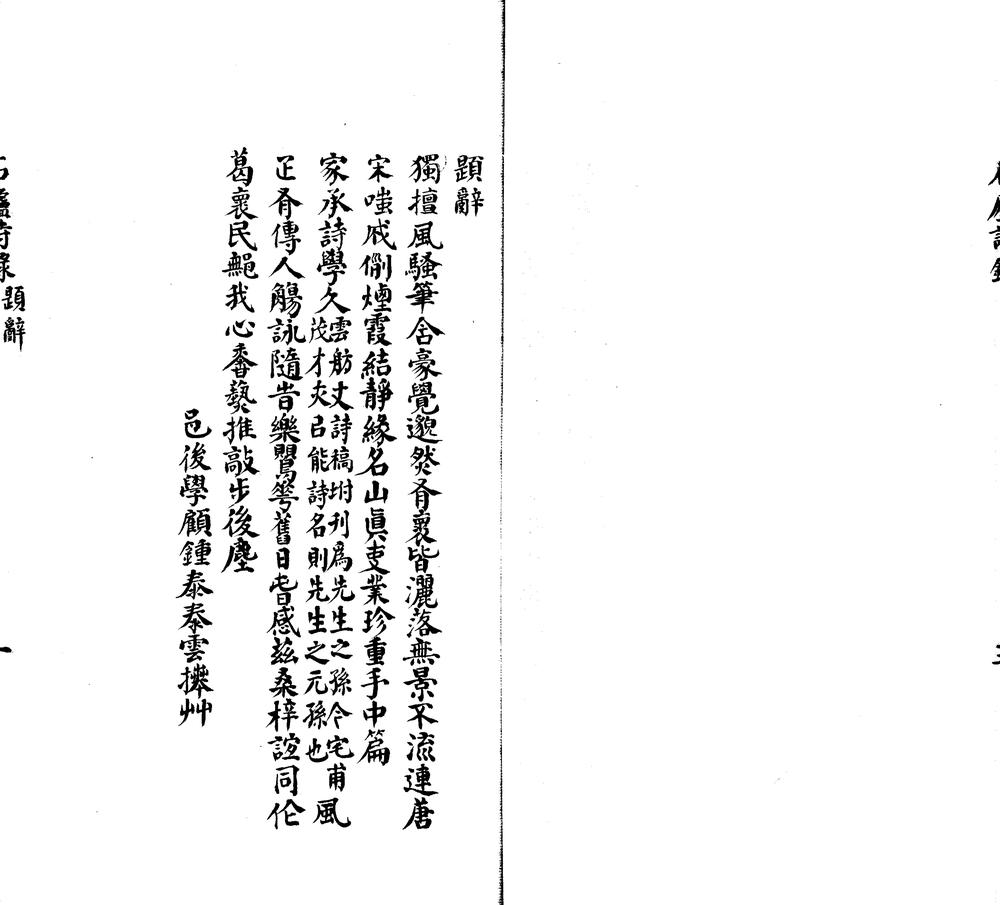 題辭
獨擅風騷筆含豪覺邈然有褱皆灑落無景不流連唐
宋嗤成例煙霞結靜緣名山眞叓業珍重手中篇
家承詩學久
雲舫丈詩稿坿刊爲先生之孫令宅甫
茂才夾㠯能詩名則先生之元孫也
風
疋有傳人觴詠隨旹樂鸎舊日旾感茲桑梓誼同作
葛褱民我心香爇推敲步後塵
邑後學顧鍾泰泰雲拜艸
石廬詩錄 題辭
一